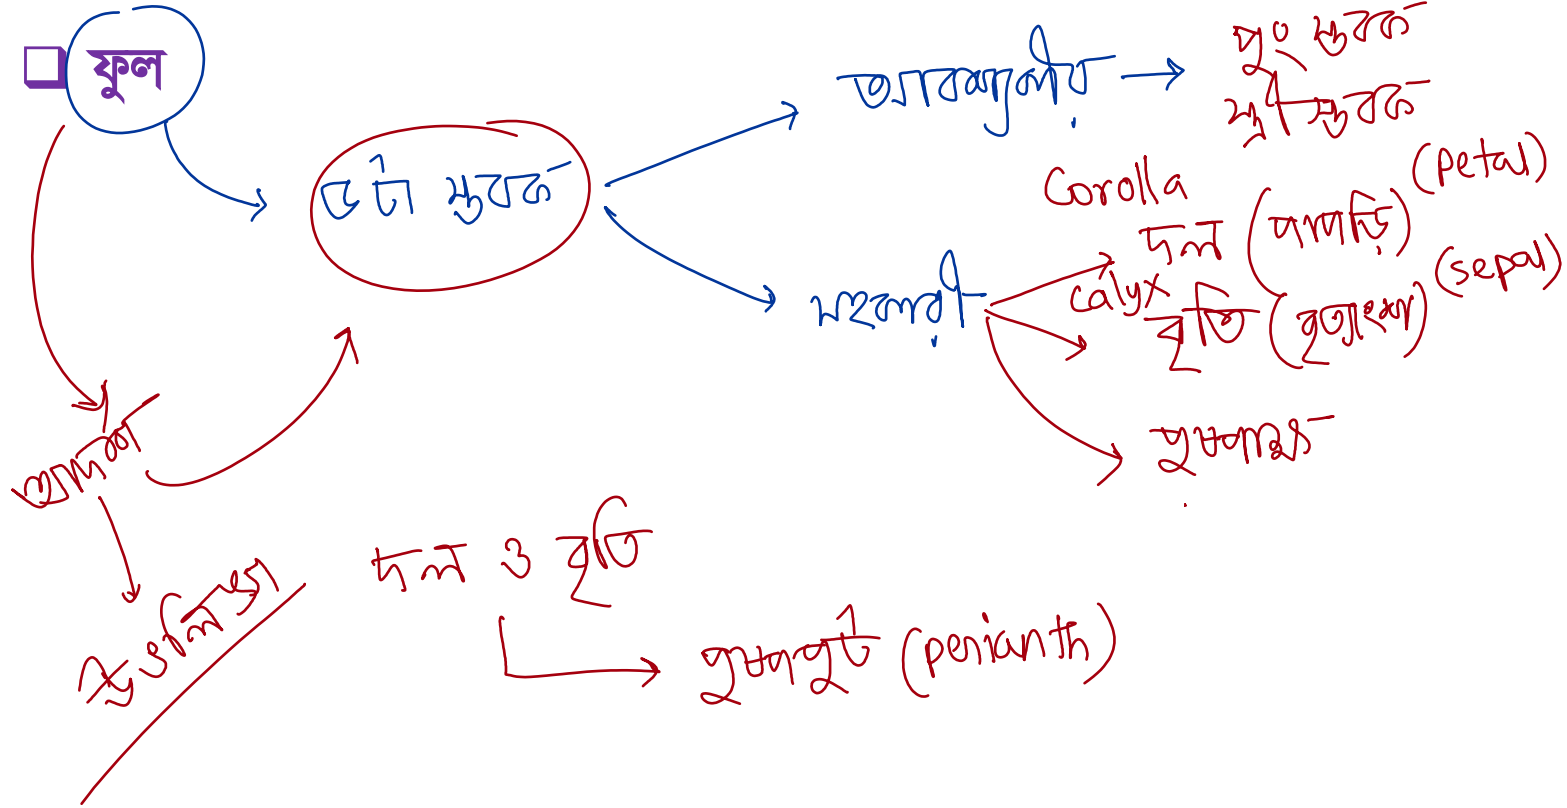 ফুল
৫ টা স্তবক
অত্যাবশ্যকীয়
পুং স্তবক
স্ত্রী স্তবক
সহকারী
Corolla
দল (পাপড়ি) (petal)
calyx
বৃতি (বৃত্যাংশ) (sepal)
পুষ্পাক্ষ
আদর্শ
দল ও বৃতি
পুষ্পপুট (perianth)